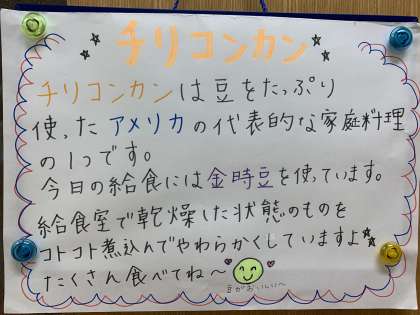 チリコンカン
チリコンカンは豆をたっぷり
使ったアメリカの代表的な家庭料理
の1つです。
今日の給食には金時豆を使っています。
給食室で乾燥した状態のものを
コトコト煮込んでやわらかくしていますよ
たくさん食べてね〜
豆がおいしい〜